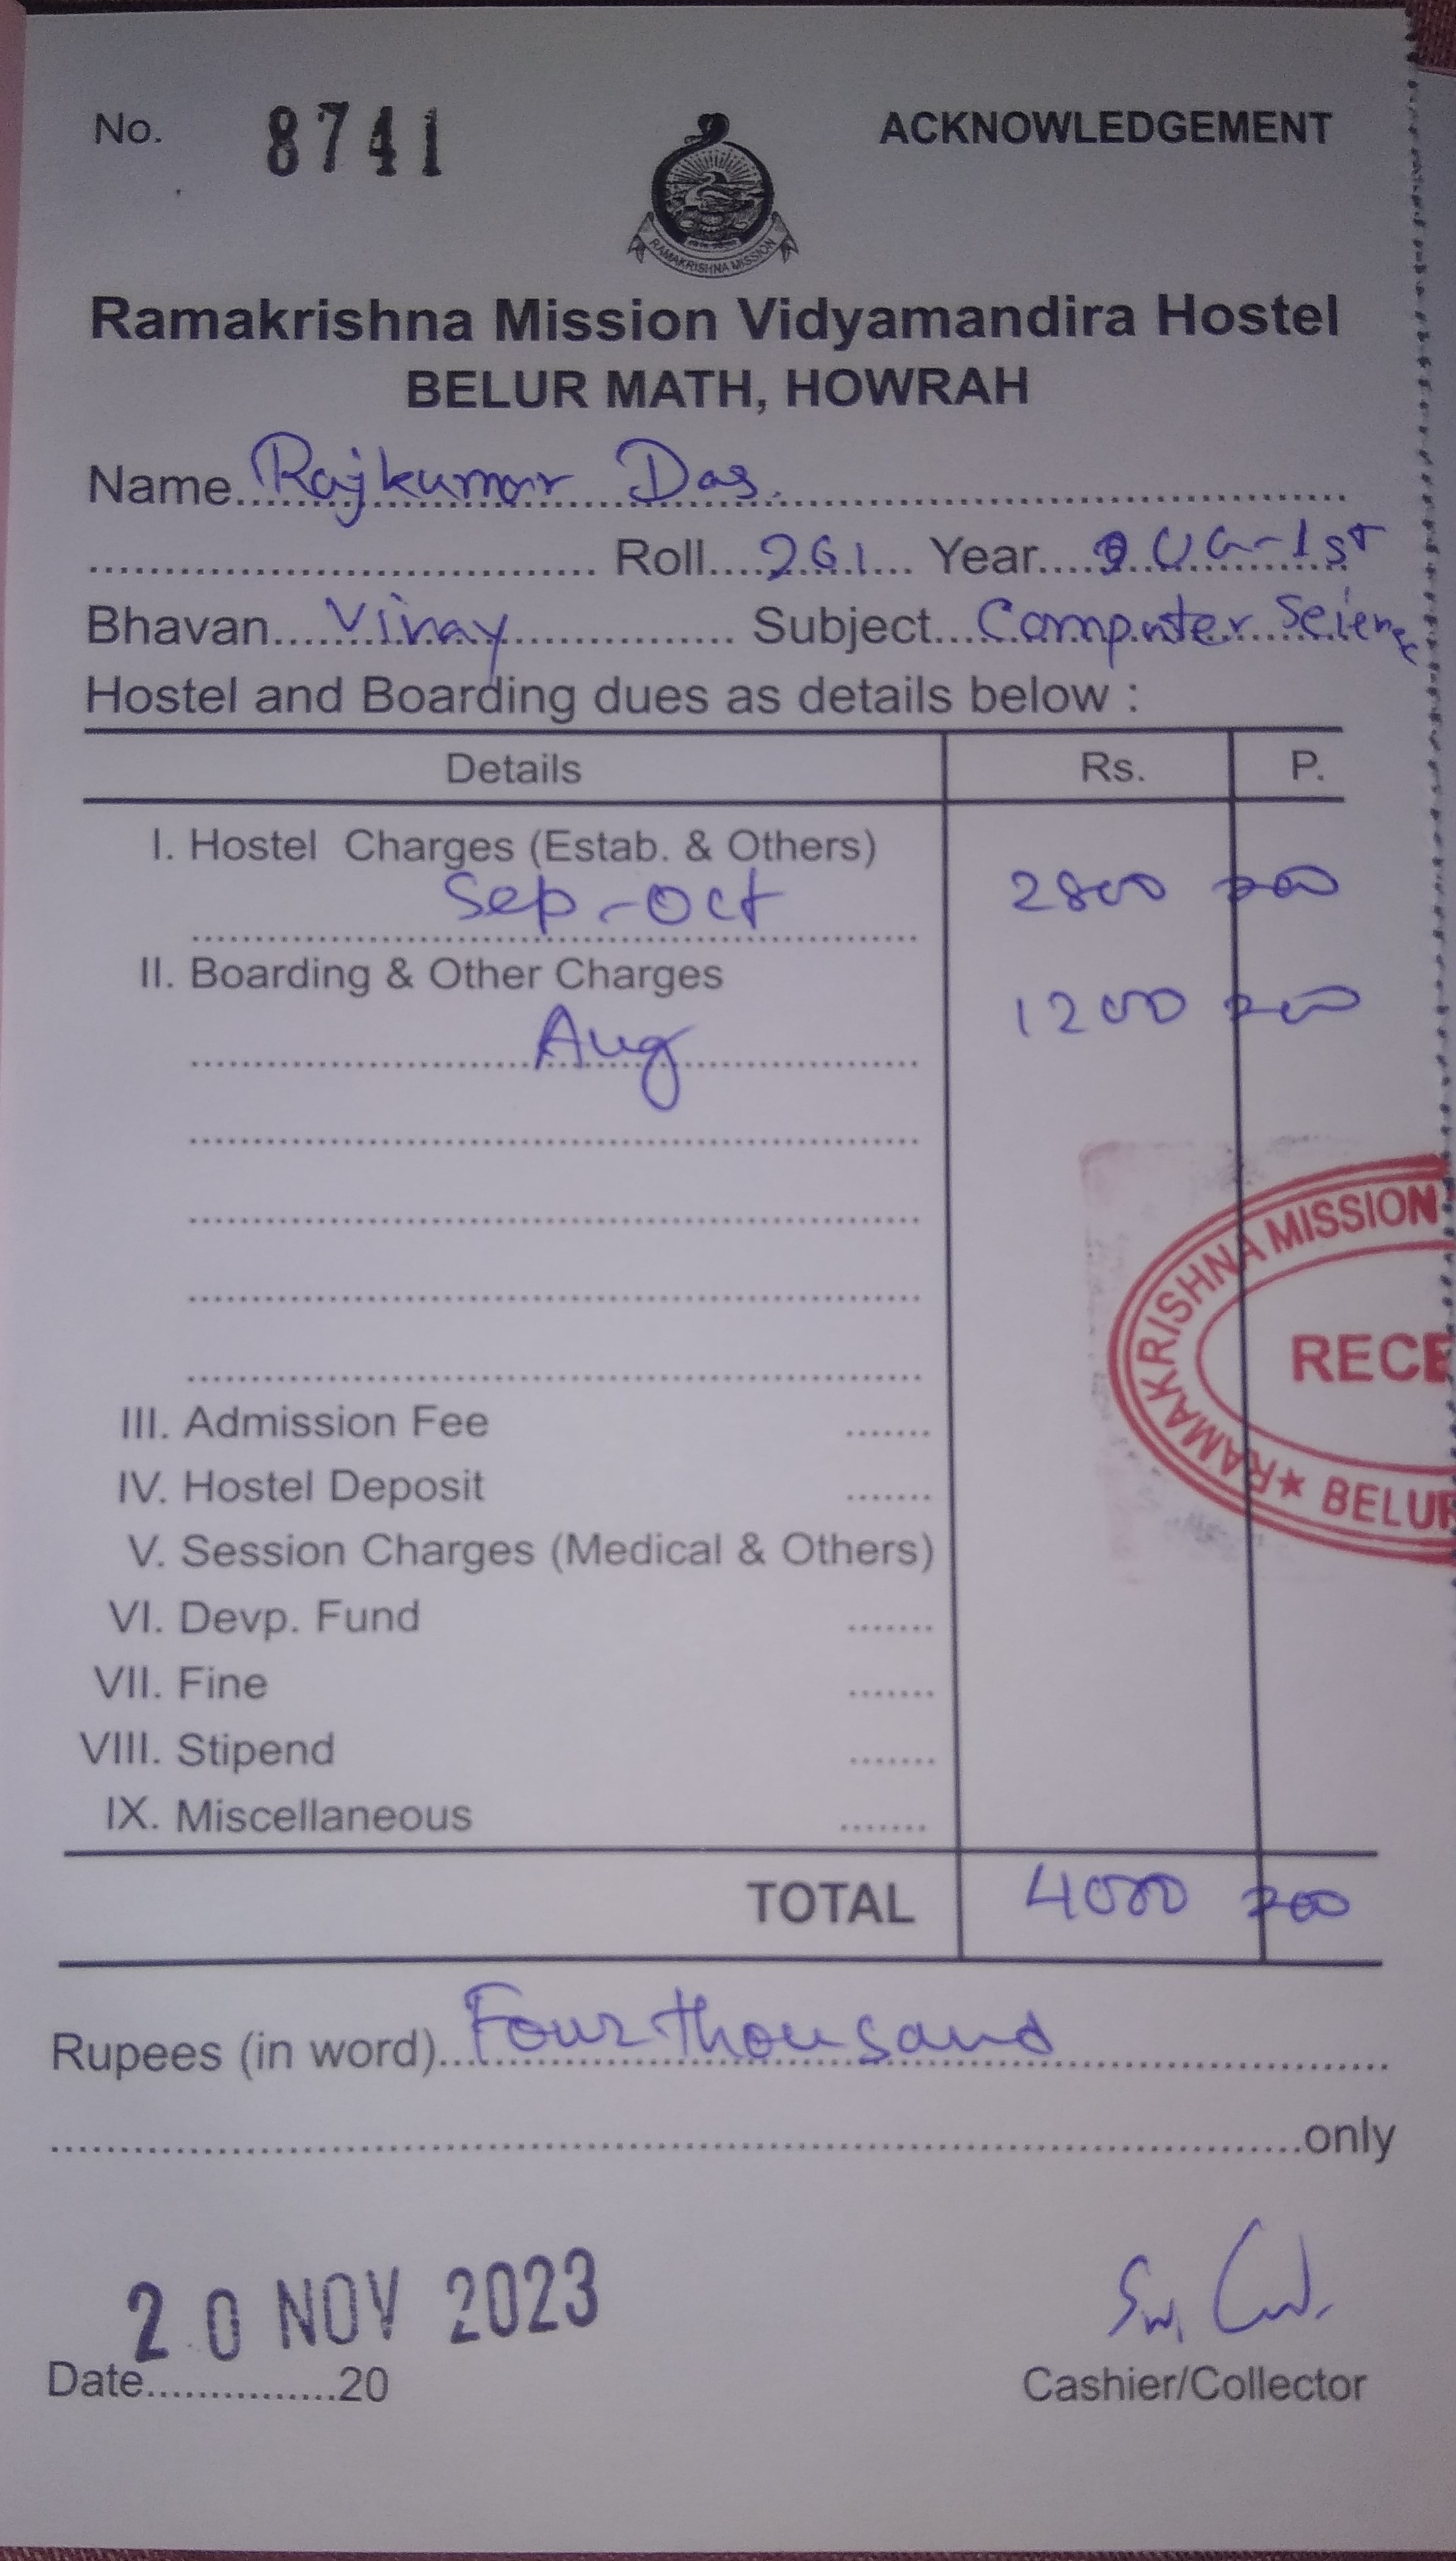 No. 8741 ACKNOWLEDGEMENT
RAMAKRISHNA MISSION
Ramakrishna Mission Vidyamandira Hostel
BELUR MATH, HOWRAH
Name Rajkumar Das.
Roll 261 Year UG-1st
Bhavan Vinay Subject Computer Science
Hostel and Boarding dues as details below :
Details Rs. P.
I. Hostel Charges (Estab. & Others)
Sep-Oct 2800
II. Boarding & Other Charges
Aug 1200
RAMAKRISHNA MISSION
RECE
★ BELUR
III. Admission Fee
IV. Hostel Deposit
V. Session Charges (Medical & Others)
VI. Devp. Fund
VII. Fine
VIII. Stipend
IX. Miscellaneous
TOTAL 4000
Rupees (in word) Four thousand
only
20 NOV 2023
Date...............20 Cashier/Collector